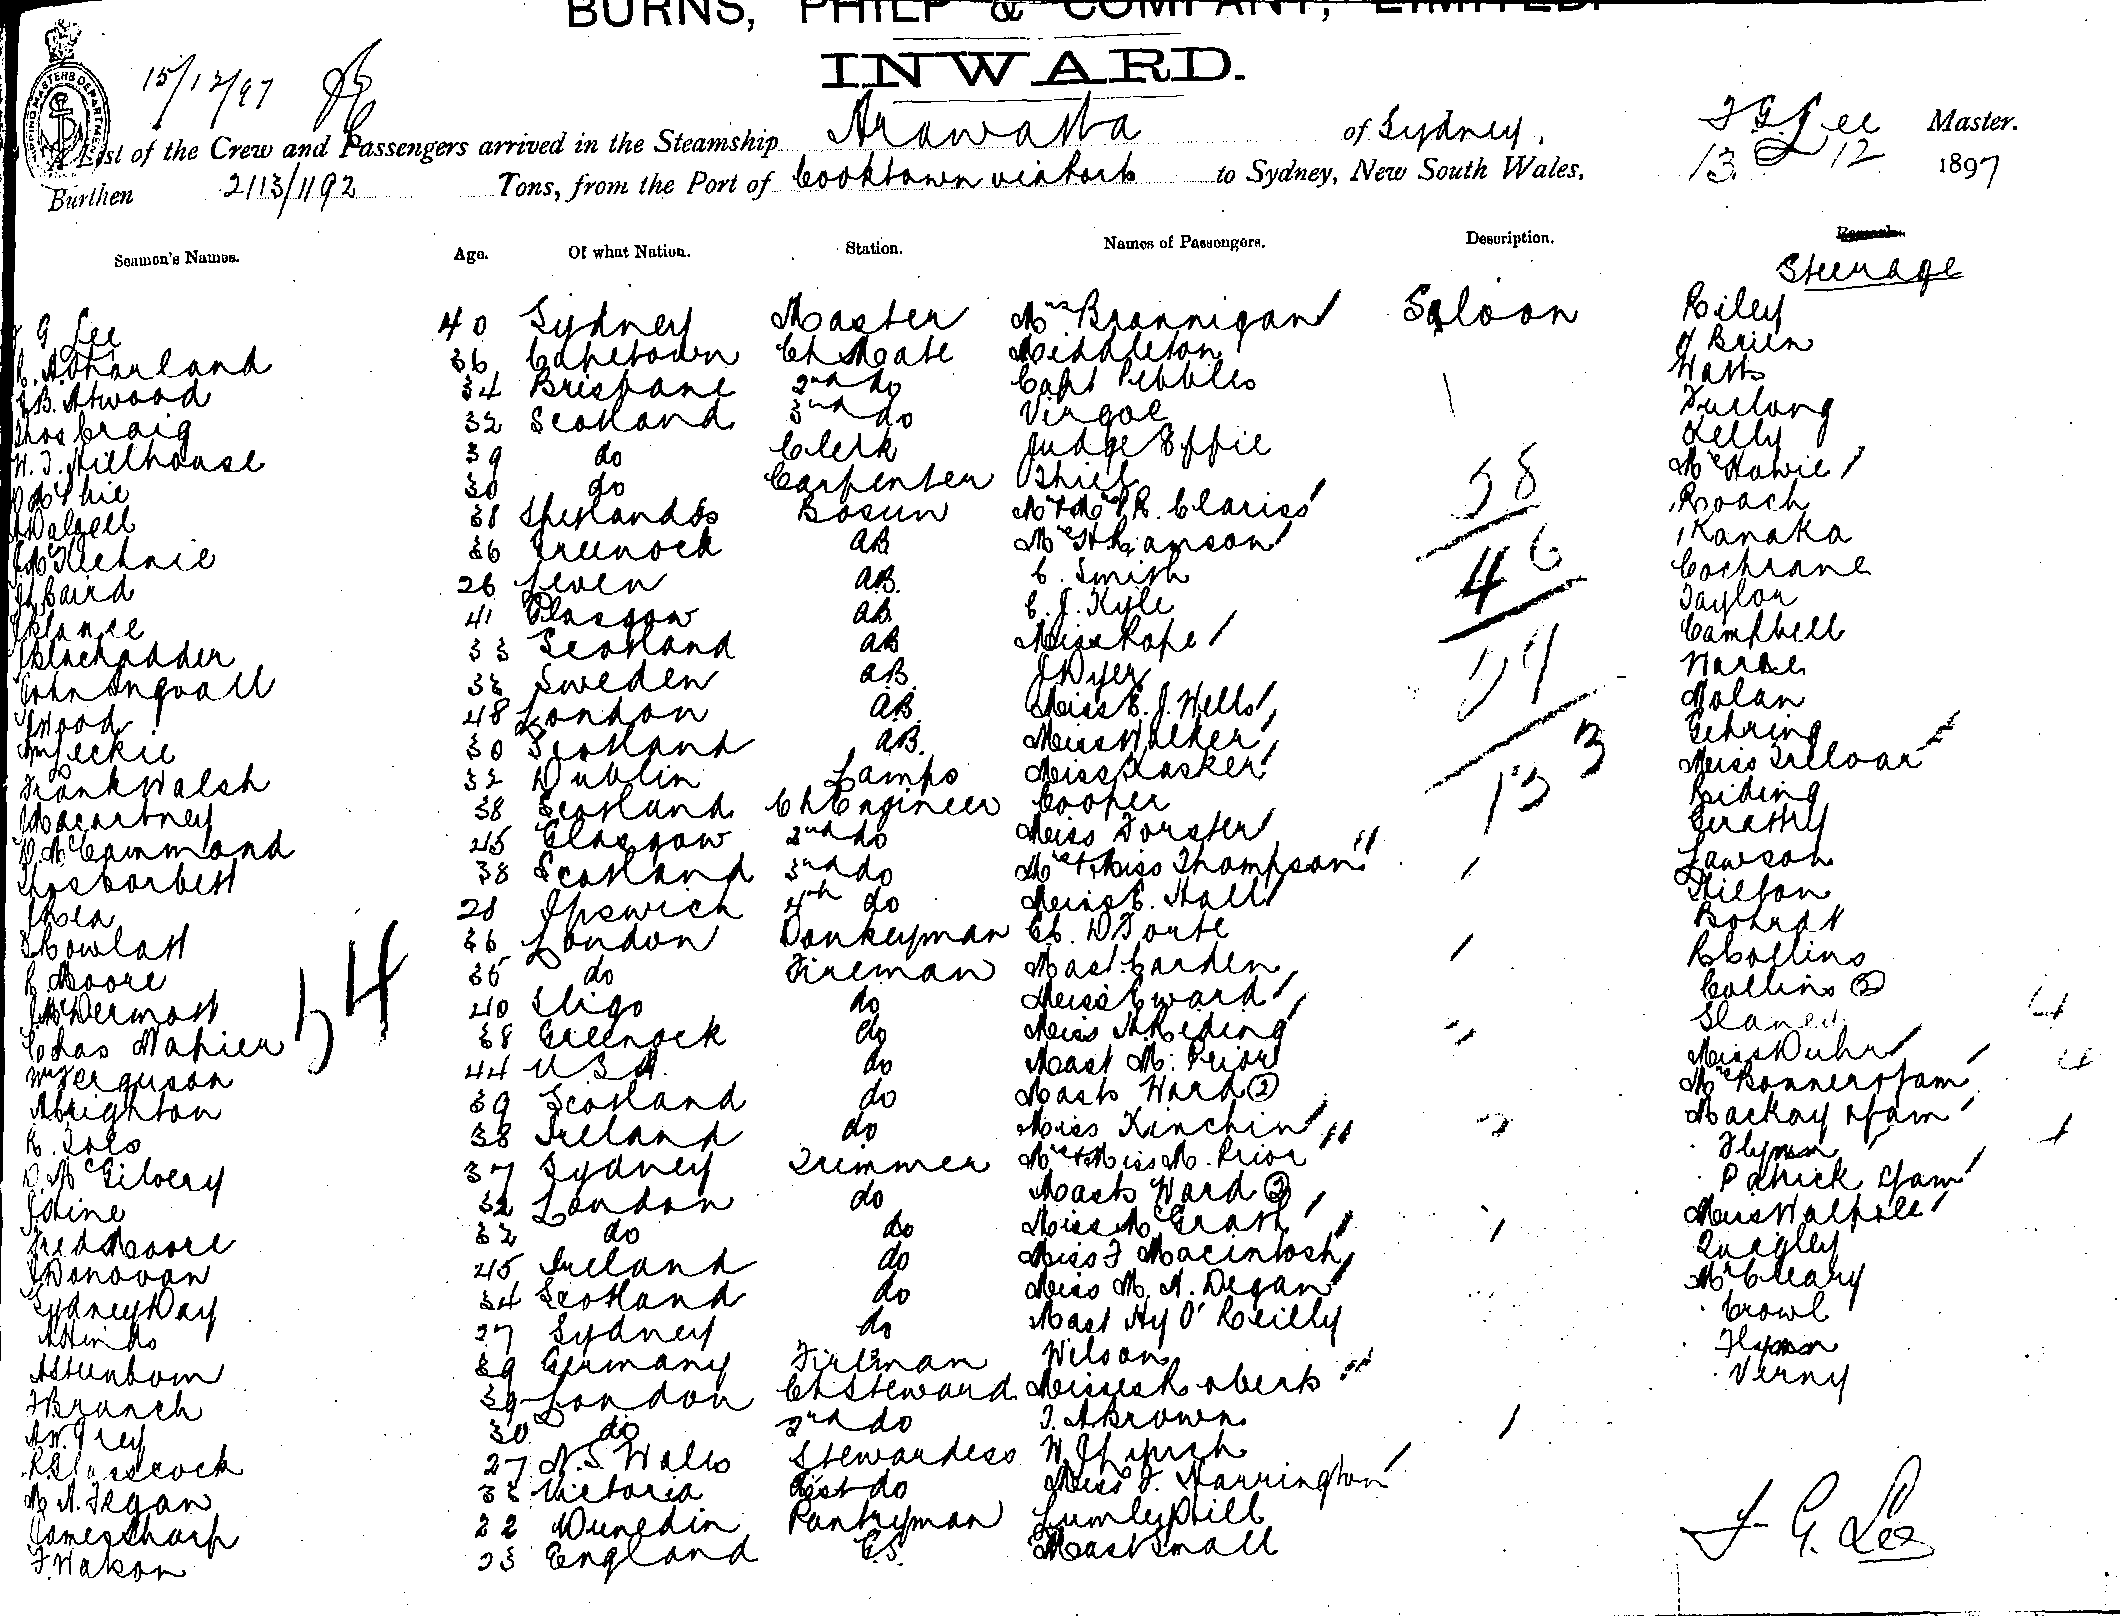 BURNS, PHILP & COMPANY, LIMITED.
INWARD.
15/12/97
List of the Crew and Passengers arrived in the Steamship Arawatta of Sydney, F G Lee Master.
Burthen 2113/1192 Tons, from the Port of Cooktown via ports to Sydney, New South Wales, 13 12 1897
Seamen's Names. Age. Of what Nation. Station. Names of Passengers. Description.
Steerage
G Lee 40 Sydney Master Mrs Brannigan Saloon Riley
36 Capetown Ch Mate Middleton O'Brien
B. Atwood 34 Brisbane 2nd do Capt Pebbles Watts
Thos Craig 32 Scotland 3rd do Virgoe Furlong
39 do Clerk Judge Effie Kelly
30 do Carpenter
Dalzell 38 Bosun Roach
36 Greenock AB 1 Kanaka
Baird 26 Leven AB C. Smith Cochrane
41 Glasgow AB C. J. Kyle Taylor
Blackadder 33 Scotland AB Miss Pope Campbell
John Ingvall 33 Sweden AB J Dyer
Wood 48 London AB Miss E. J. Wells Nolan
Wm Leckie 30 Scotland AB. Miss Walker Gehring
Frank Walsh 32 Dublin Lamps Miss Tasker Miss Treloar
Macartney 38 Scotland Ch Engineer Cooper Riding
D. McCammond 45 Glasgow 2nd do Miss Forster Geraghty
Thos Corbett 38 Scotland 3rd do Mrs & Miss Thompson Lawson
Rea 28 Ipswich 4th do Miss E. Hall
Howlatt 36 London Donkeyman
R. Moore 35 do Fireman Mast. Carden R Collins
J McDermott 40 Sligo do Miss E Ward Collins 2
Chas Napier 38 Greenock do Miss A Riding
Wm Ferguson 44 U.S.A. do Mast M. Prior Miss Duhr
A Leighton 39 Scotland do Masts Ward 2 Mrs Bonner & fam
38 Ireland do Miss Kinchin Mackay & fam
D. McGilvery 37 Sydney Trimmer Mrs & Miss M. Prior Flynn
J Hine 32 London do Masts Ward 2 Patrick & fam
Fred Moore 32 do do Miss McGrath Miss Walpole
J Donovan 45 Ireland do Miss F Macintosh Quigley
Sydney Day 34 Scotland do Miss M. A. Degan McCleary
27 Sydney do Mast Hy O'Reilly Crowl
39 Germany Fireman Wilson Flynn
F Branch 39 London Ch Steward Misses Roberts Verny
A W. Grey 30 do 2nd do T. A Brown
27 N. S. Wales Stewardess W J Lynch
M. A. Fegan 33 Victoria Asst do Miss J. Harrington
James Sharp 22 Dunedin Pantryman Lumley Hill
F. Watson 23 England C.S. Mast Small
54
58
46
29
133
F. G. Lee